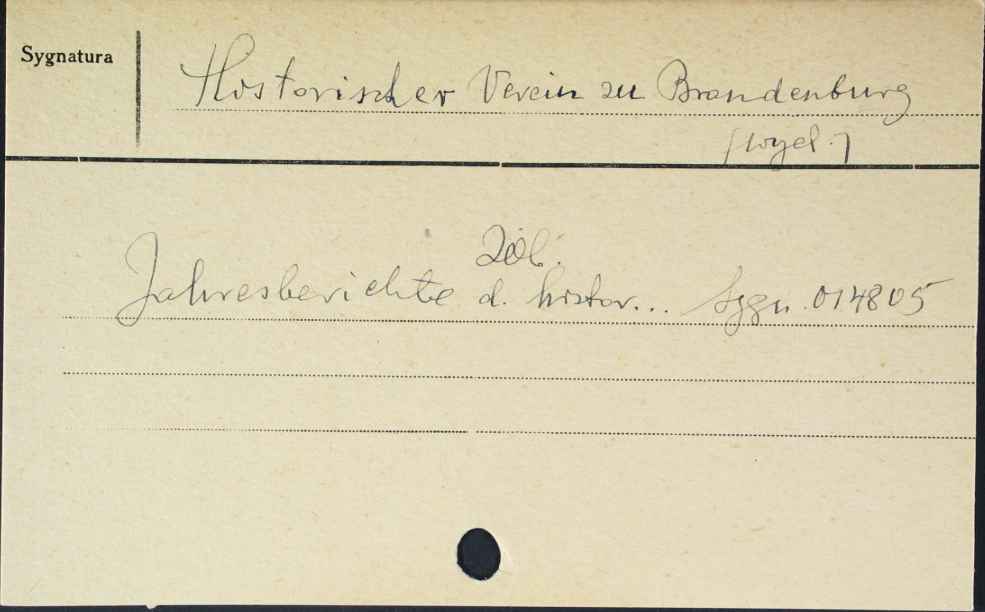 Sygnatura
Historischer Verein zu Brandenburg
[wyd.]
Zob.
Jahresberichte d. histor... Sygn. 014805